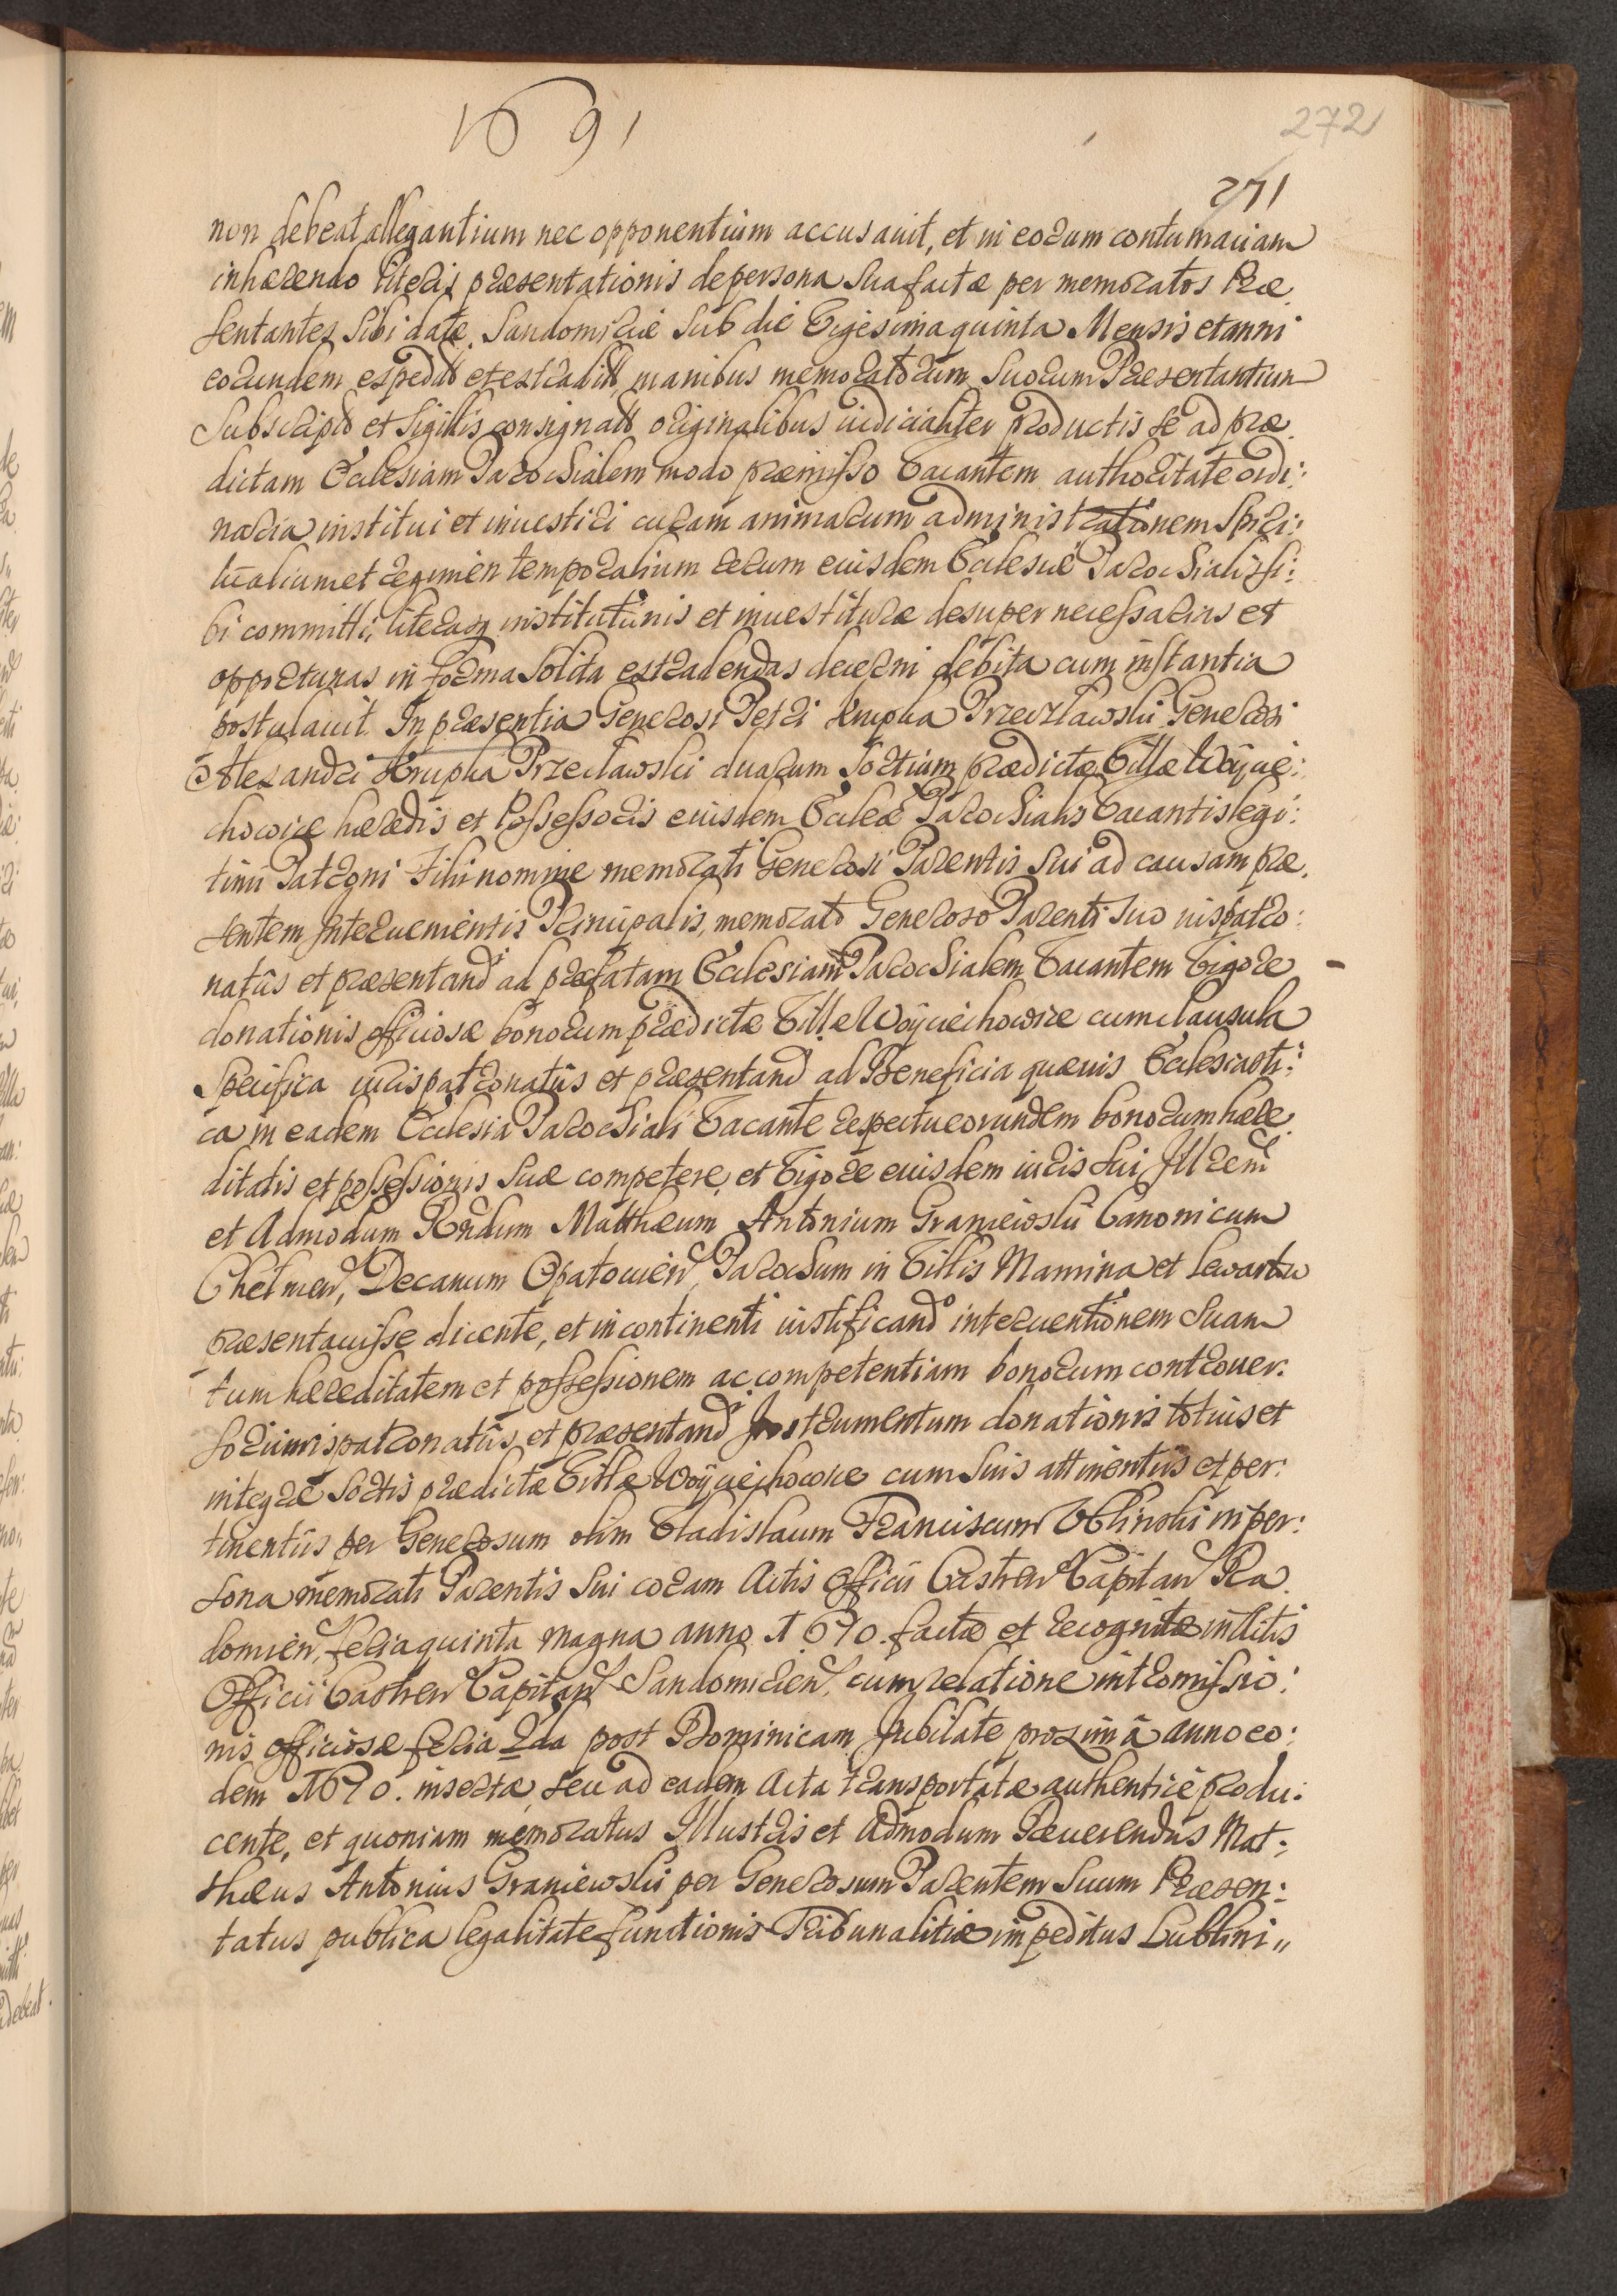 1691
272
271
non debeat allegantium nec opponentium accusavit, et in eorum contumaciam
inhærendo literis præsentationis de persona sua factæ per memoratos Præ
sentantes sibi datæ, Sandomiriæ sub die Vigesima quinta Mensis et anni
eorundem expedit et extradit, manibus memoratorum suorum Præsentantium
Subscript et Sigillis consignatt originalibus iudicialiter productis se ad præ
dictam Ecclesiam Parochialem modo præmisso Vacantem authoritate ordi:
naria institui et investiri curam animarum administrationem Spiri:
tualium et regimen temporalium rerum eiusdem Ecclesiæ Parochialis si:
bi committi, literasq institutionis et investituræ desuper necessarias et
opportunas in forma solita extradendas decerni debita cum instantia
postulavit. In præsentia Generosi Petri Krupka Przecławski Generosi
Alexandri Krupka Przecławski duarum Sortium prædictæ Villæ Woycie:
chowice hæredis et Possessoris eiusdem Eccleæ Parochialis Vacantis legi:
timi Patroni Filii nomine memorati Generosi Parentis sui ad causam præ
sentem Intervenientis Principalis, memorato Generoso Parenti suo iuspatro:
natûs et præsentand ad præfatam Ecclesiam Parochialem Vacantem Vigore
donationis officiosæ bonorum prædictæ Villæ Woyciechowice cum clausula
Specifica iurispatronatûs et præsentand ad Beneficia quævis Ecclesiasti:
ca in eadem Ecclesia Parochiali Vacante respectu eorundem bonorum hære
ditatis et possessionis suæ competere, et Vigore eiusdem iuris sui Illrem
et Admodum Rndum Matthæum Antonium Graniewski Canonicum
Chelmen, Decanum Opatovien, Parochum in Villis Mamina et Lewartow
præsentavisse dicente, et in continenti iustificand interventionem suam
tum hæreditatem et possessionem ac competentiam bonorum controver.
so iurispatronatûs et præsentand Instrumentum donationis totius et
integræ sortis prædictæ Villæ Woyciechowice cum suis attinentiis et per:
tinentiis per Generosum olim Vladislaum Franciscum Oblinski in per:
sona memorati Parentis sui coram Actis Officii Castren Capitan Ra
domien, feria quinta magna anno 1690. factæ et recognitæ in Actis
Officii Castren Capitan Sandomirien, cum relatione intromissio:
nis officiosæ feria 2da post Dominicam Jubilate proximâ anno eo:
dem 1690. insertæ, seu ad eadem Acta transportatæ authentice produ:
cente, et quoniam memoratus Illustris et Admodum Reverendus Mat:
thæus Antonius Graniewski per Generosum Parentem suum Præsen:
tatus publica legalitate functionis Tribunalitiæ impeditus Lublini„